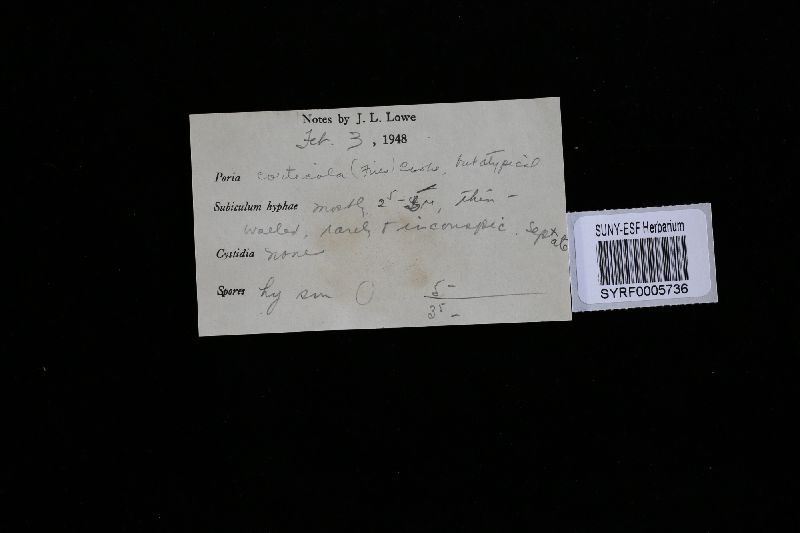 Notes by J. L. Lowe
Feb. 3, 1948
Poria corticola (Fries) Cooke, but atypical
Subiculum hyphae mostly 2⁵-5µ, thin-
walled, rarely & inconspic. septate
Cystidia none
Spores hy sm 5-
3⁵-
SUNY-ESF Herbarium
SYRF0005736